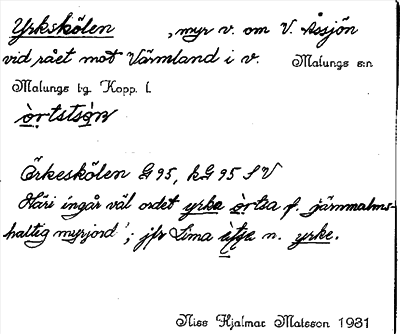 Yrkskölen , myr v. om V. Åssjön
vid rået mot Värmland i v. Malungs s:n
Malungs tg. Kopp. l.
Örkeskölen G 95, kG 95 S V
Häri ingår väl ordet yrke f. järnmalms-
haltig myrjord'; jfr Lima n. yrke.
Niss Hjalmar Matsson 1931